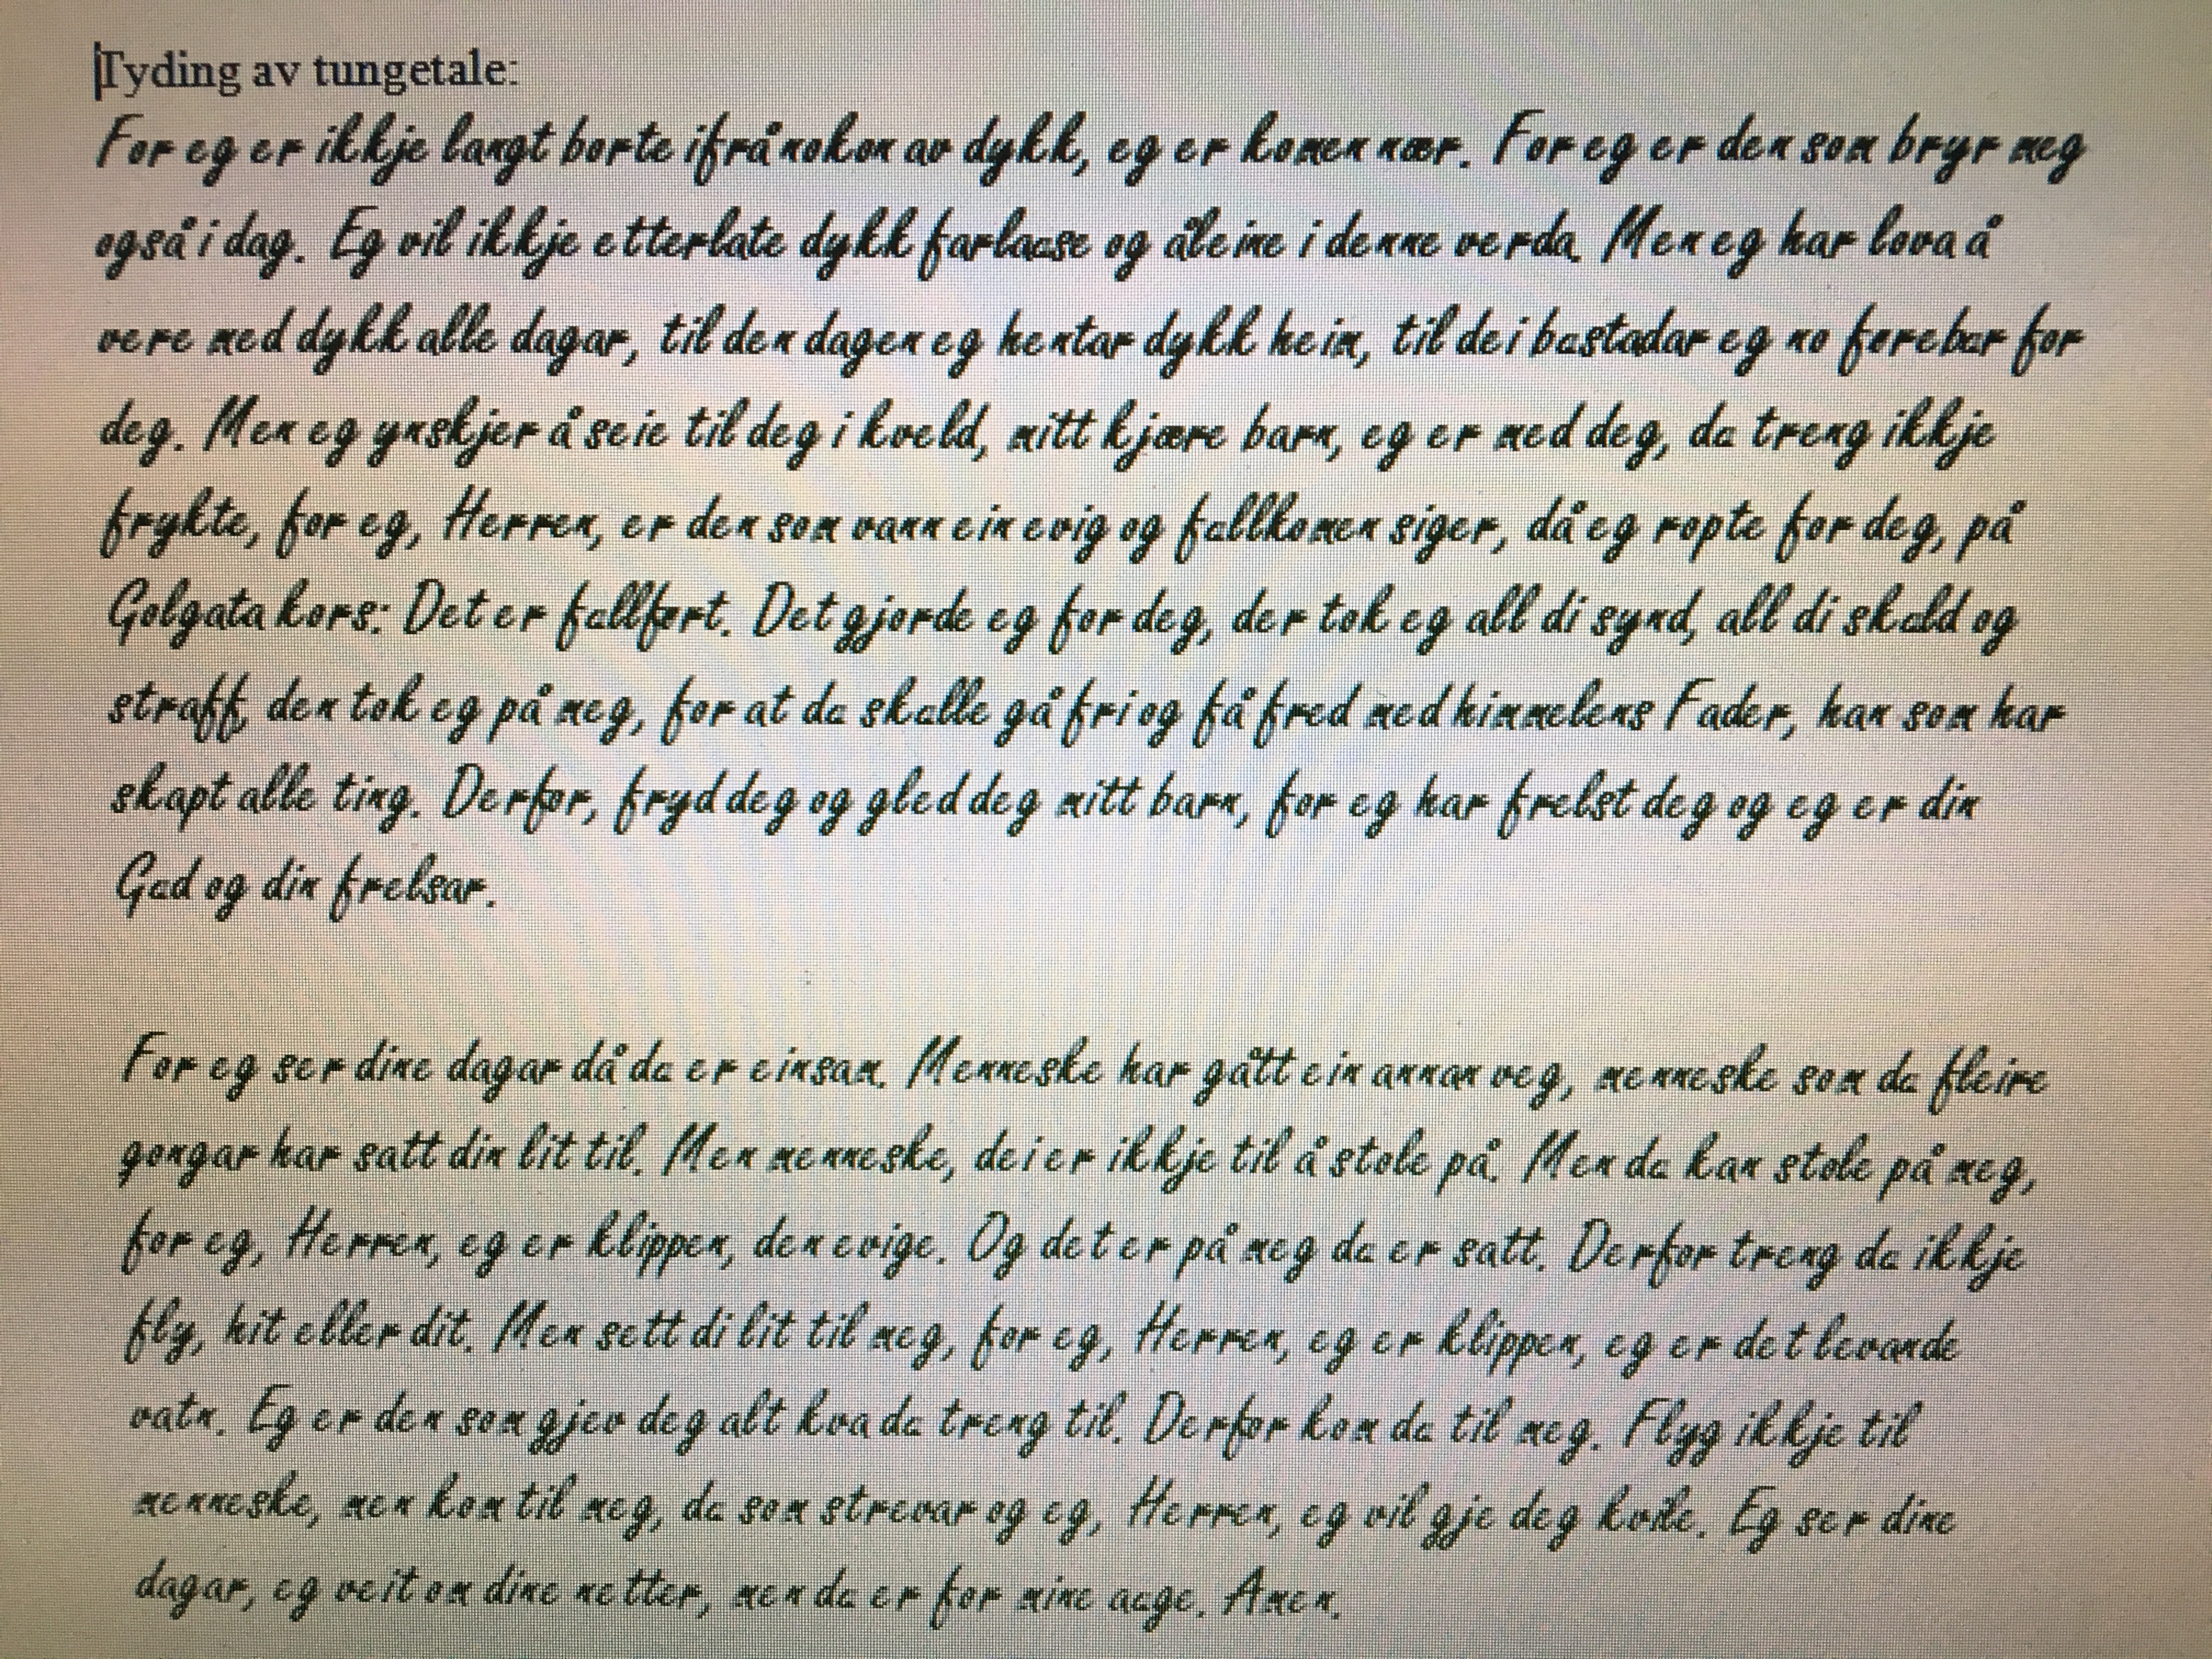 Tyding av tungetale:
For eg er ikkje langt borte ifrå nokon av dykk, eg er komen nær. For eg er den som bryr meg
også i dag. Eg vil ikkje etterlate dykk farlause og åleine i denne verda. Men eg har lova å
vere med dykk alle dagar, til den dagen eg hentar dykk heim, til dei bustadar eg no førebur for
deg. Men eg ynskjer å seie til deg i kveld, mitt kjære barn, eg er med deg, du treng ikkje
frykte, for eg, Herren, er den som vann ein evig og fullkomen siger, då eg ropte for deg, på
Golgata kors: Det er fullført. Det gjorde eg for deg, der tok eg all di synd, all di skuld og
straff, den tok eg på meg, for at du skulle gå fri og få fred med himmelens Fader, han som har
skapt alle ting. Derfor, fryd deg og gled deg mitt barn, for eg har frelst deg og eg er din
Gud og din frelsar.
For eg ser dine dagar då du er einsam. Menneske har gått ein annan veg, menneske som du fleire
gongar har satt din lit til. Men menneske, dei er ikkje til å stole på. Men du kan stole på meg,
for eg, Herren, eg er klippen, den evige. Og det er på meg du er satt. Derfor treng du ikkje
fly, hit eller dit. Men sett di lit til meg, for eg, Herren, eg er klippen, eg er det levande
vatn. Eg er den som gjev deg alt kva du treng til. Derfor kom du til meg. Flyg ikkje til
menneske, men kom til meg, du som strevar og eg, Herren, eg vil gje deg kvile. Eg ser dine
dagar, eg veit om dine netter, men du er for mine auge. Amen.